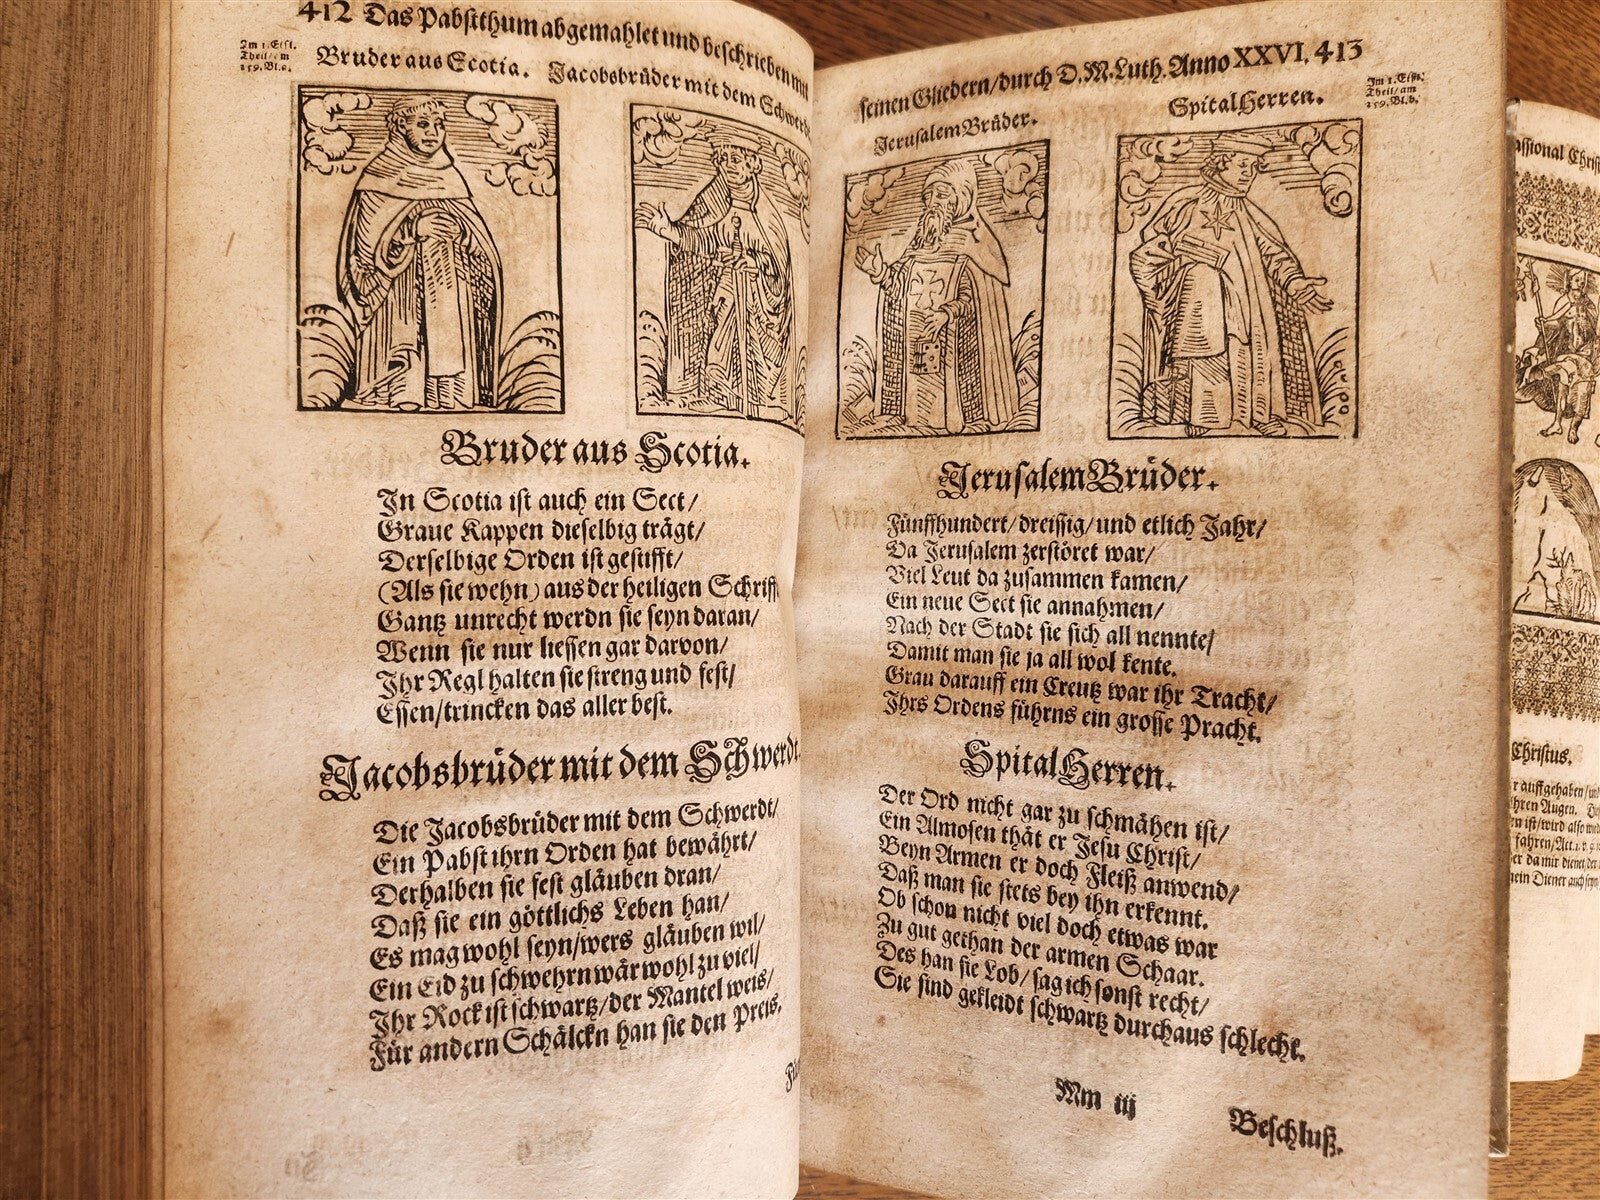 412 Das Pabstthum abgemahlet und beschrieben mit
Im 1. Eisl.
Theil/am
259. Bl.a.
Bruder aus Scotia. Jacobsbrüder mit dem Schwerdt
Bruder aus Scotia.
In Scotia ist auch ein Sect/
Graue Kappen dieselbig trägt/
Derselbige Orden ist gestifft/
(Als sie wehn) aus der heiligen Schrifft
Gantz unrecht werdn sie seyn daran/
Wenn sie nur liessen gar darvon/
Ihr Regl halten sie streng und fest/
Essen/trincken das aller best.
Jacobsbrüder mit dem Schwerdt.
Die Jacobsbrüder mit dem Schwerdt/
Ein Pabst ihrn Orden hat bewährt/
Derhalben sie fest gläuben dran/
Daß sie ein göttlichs Leben han/
Es mag wohl seyn/wers gläuben wil/
Ein Eid zu schwehrn wär wohl zu viel/
Ihr Rock ist schwartz/der Mantel weis/
Für andern Schälckn han sie den Preis.
seinen Gliedern/durch D.M.Luth. Anno XXVI. 413
Im 1. Eisl.
Theil/am
259. Bl.b.
Jerusalem Brüder. Spital Herren.
Jerusalem Brüder.
Fünffhundert/dreissig/und etlich Jahr/
Da Jerusalem zerstöret war/
Viel Leut da zusammen kamen/
Ein neue Sect sie annahmen/
Nach der Stadt sie sich all nennte/
Damit man sie ja all wol kente.
Grau darauff ein Creutz war ihr Tracht/
Ihrs Ordens führns ein grosse Pracht.
Spital Herren.
Der Ord nicht gar zu schmähen ist/
Ein Almosen thät er Jesu Christ/
Beyn Armen er doch Fleiß anwend/
Daß man sie stets bey ihn erkennt.
Ob schon nicht viel doch etwas war
Zu gut gethan der armen Schaar.
Des han sie Lob/sag ich sonst recht/
Sie sind gekleidt schwartz durchaus schlecht.
Mm iij
Beschluß.
Christus.